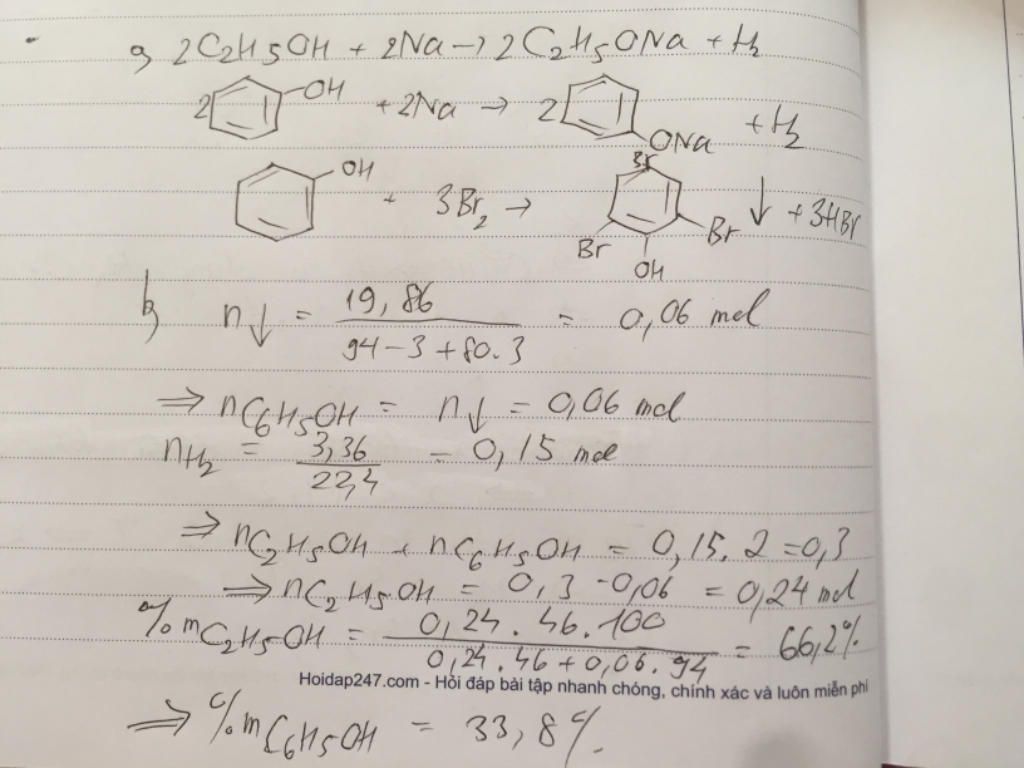 a, 2C2H5OH + 2Na → 2C2H5ONa + H2
2 OH + 2Na → 2 ONa + H2
OH + 3Br2 → Br Br Br OH ↓ + 3HBr
b, n↓ = 19,86 / 94-3+80.3 = 0,06 mol
⇒ nC6H5OH = n↓ = 0,06 mol
nH2 = 3,36 / 22,4 = 0,15 mol
⇒ nC2H5OH + nC6H5OH = 0,15.2 = 0,3
⇒ nC2H5OH = 0,3 - 0,06 = 0,24 mol
%mC2H5OH = 0,24.46.100 / 0,24.46 + 0,06.94 = 66,2%
Hoidap247.com - Hỏi đáp bài tập nhanh chóng, chính xác và luôn miễn phí
⇒ %mC6H5OH = 33,8%.